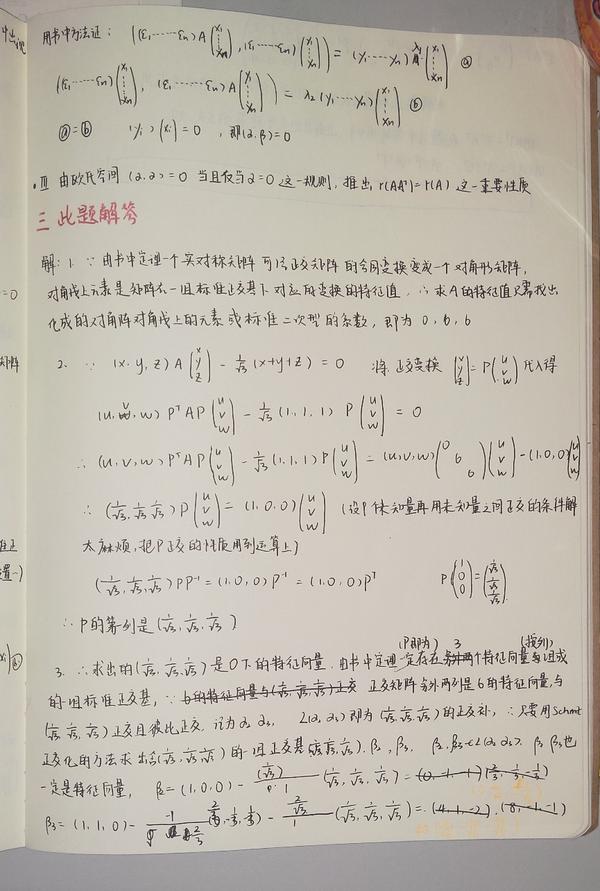 用书中方法证: ((ε₁……εn)A(x₁⋮xn), (ε₁……εn)(x₁⋮xn)) = (y₁……yn)λ₁(x₁⋮xn) ⓐ
((ε₁……εn)(x₁⋮xn), (ε₁……εn)A(x₁⋮xn)) = λ₂(y₁……yn)(x₁⋮xn) ⓑ
ⓐ=ⓑ (yi)(xi)=0, 即(α,β)=0
Ⅲ 由欧氏空间 (α,α)=0 当且仅当α=0 这一规则, 推出 r(AAᵀ)=r(A) 这一重要性质
三 此题解答
解: 1. ∵ 由书中定理一个实对称矩阵可经正交矩阵的合同变换变成一个对角形矩阵,
对角线上元素是矩阵在一组标准正交基下对应的变换的特征值, ∴求A的特征值只需找出
化成的对角阵对角线上的元素或标准二次型的系数, 即为0, 6, 6
2. ∵ (x.y,z)A(x y z) - 1/√3(x+y+z) = 0 将正交变换 (x y z) = P(u v w) 代入得
(u,v,w)PᵀAP(u v w) - 1/√3(1,1,1)P(u v w) = 0
∴ (u,v,w)PᵀAP(u v w) - 1/√3(1,1,1)P(u v w) = (u,v,w)(0 6 6)(u v w) - (1,0,0)(u v w)
∴ (1/√3, 1/√3, 1/√3)P(u v w) = (1,0,0)(u v w) (设P体未知量再用未知量之间正交的条件解
太麻烦, 把P正交的性质用到运算上)
(1/√3, 1/√3, 1/√3)PP⁻¹ = (1,0,0)P⁻¹ = (1,0,0)Pᵀ P(1 0 0) = (1/√3 1/√3 1/√3)
∴ P的第1列是(1/√3, 1/√3, 1/√3)
(P即为) 3 (按列)
3. ∴求出的(1/√3, 1/√3, 1/√3)是0下的特征向量, 由书中定理一定存在个特征向量组成
的一组标准正交基, ∵ 正交矩阵另外两列是6的特征向量, 与
(1/√3, 1/√3, 1/√3)正交且彼此正交, 记为α₂ α₃, L(α₂ α₃)即为(1/√3, 1/√3, 1/√3)的正交补, ∴只要用Schmt
正交化的方法求出含(1/√3, 1/√3, 1/√3)的一组正交基(1/√3, 1/√3, 1/√3), β₂, β₃. β₂.β₃∈L(α₂ α₃). β₂ β₃也
一定是特征向量, β₂=(1,0,0) - (1/√3)/1 (1/√3, 1/√3, 1/√3) = (2/3, -1/3, -1/3)
β₃=(1,1,0) - (2/√3)/1 (1/√3, 1/√3, 1/√3) =